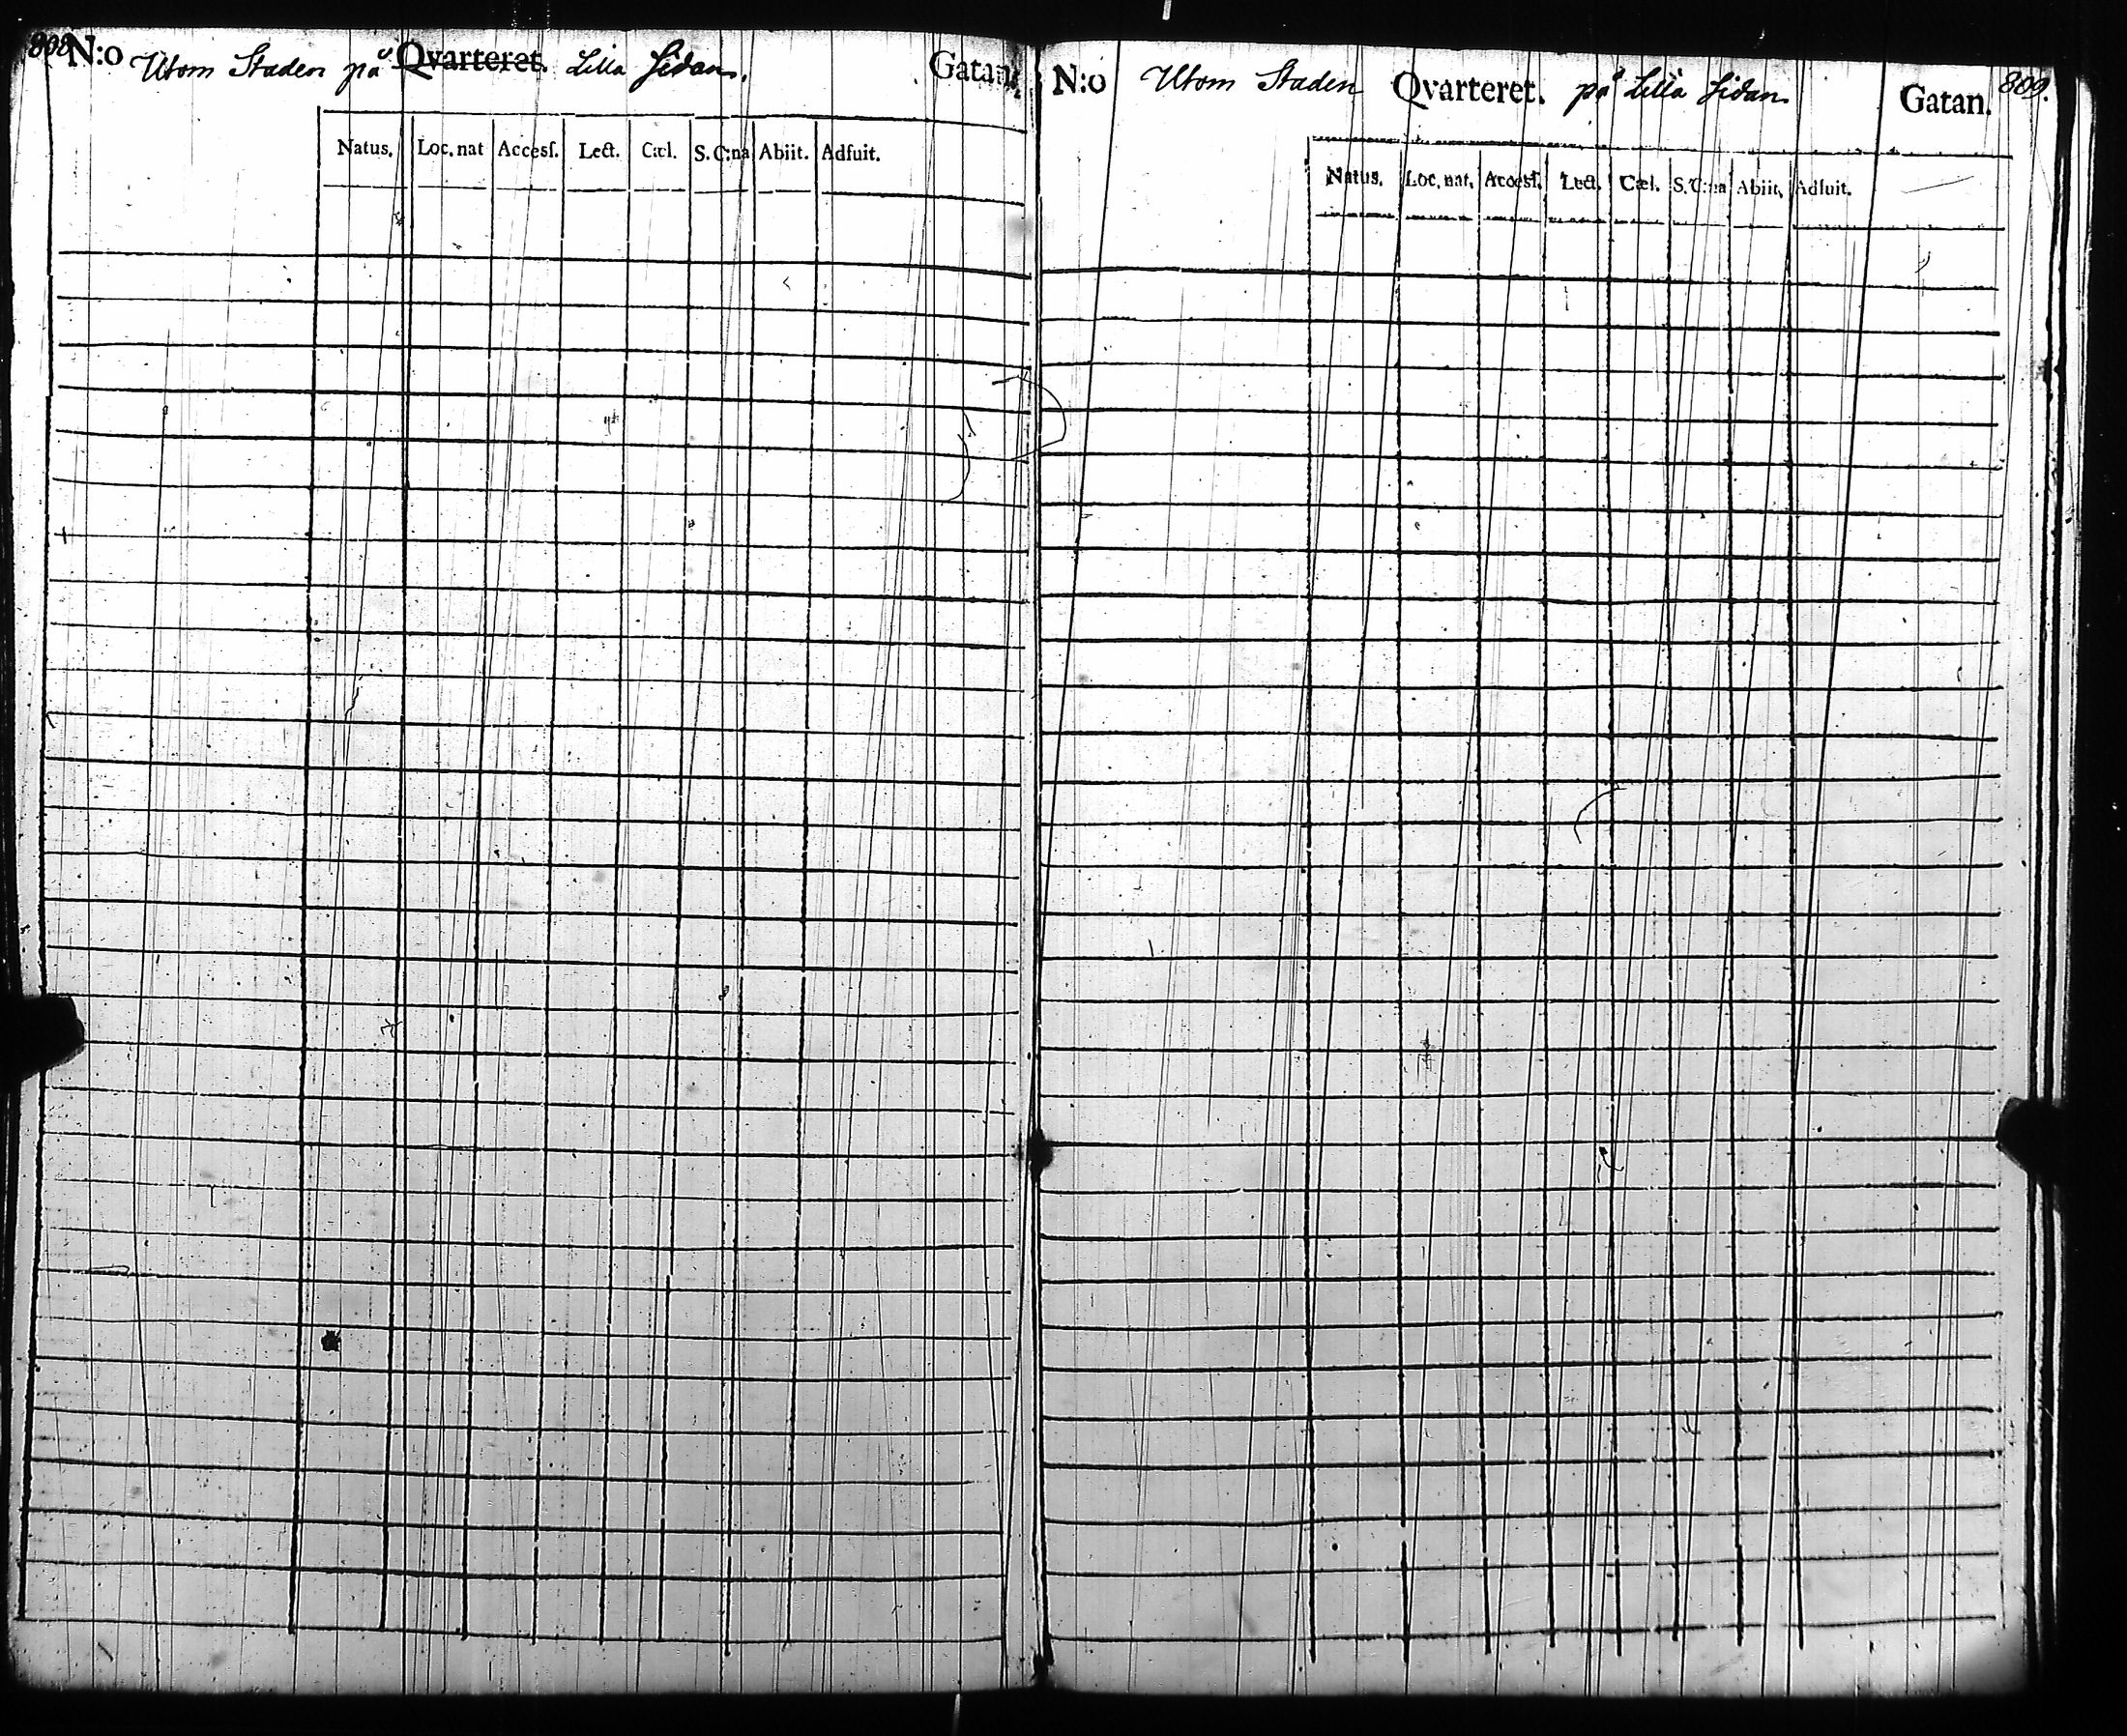 808. N:o Utom Staden på Qvarteret. Lilla Sidan. Gatan.
Natus. Loc. nat Accesſ. Lect. Cæl. S. C:na Abiit. Adfuit.
N:o Utom Staden Qvarteret. på Lilla Sidan Gatan. 809.
Natus. Loc. nat. Accesſ. Lect. Cæl. S. C:na Abiit. Adfuit.